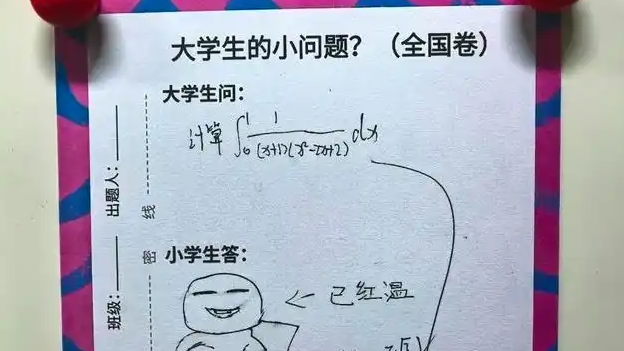 大学生的小问题？（全国卷）
大学生问：
计算 ∫₀¹ 1/((x+1)(x²-2x+2)) dx
出题人：
线
密
小学生答：
← 已红温
班级：